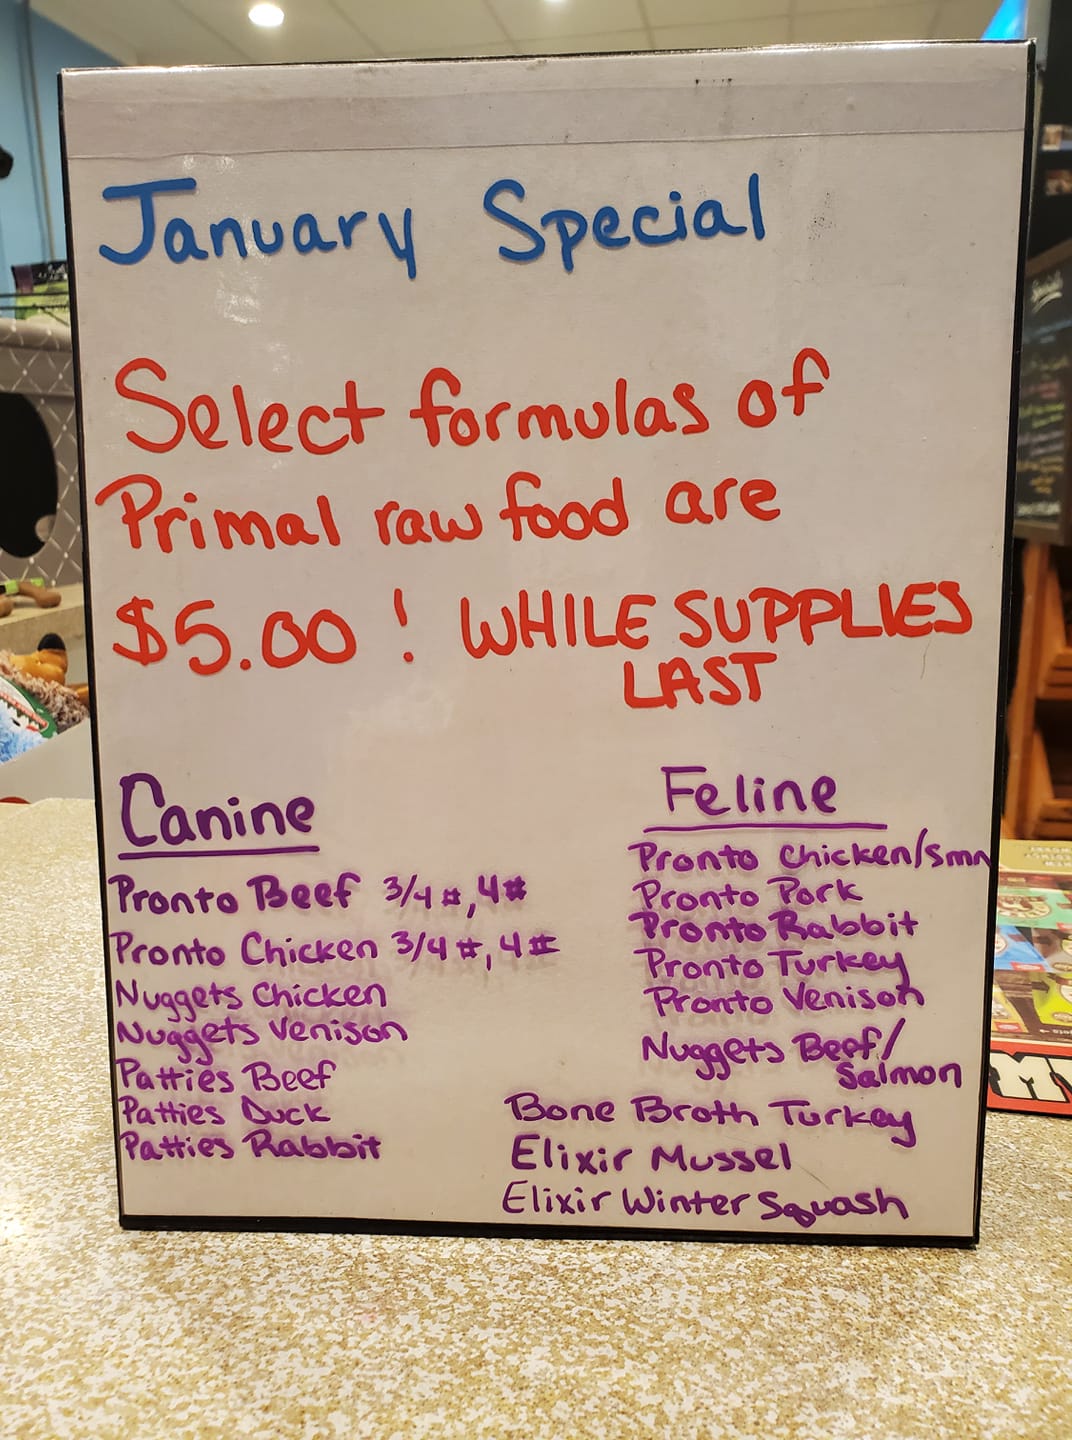 January Special
Select formulas of
Primal raw food are
$5.00! WHILE SUPPLIES
LAST
Canine
Pronto Beef 3/4#, 4#
Pronto Chicken 3/4#, 4#
Nuggets Chicken
Nuggets Venison
Patties Beef
Patties Duck
Patties Rabbit
Feline
Pronto Chicken/Smn
Pronto Pork
Pronto Rabbit
Pronto Turkey
Pronto Venison
Nuggets Beef/
Salmon
Bone Broth Turkey
Elixir Mussel
Elixir Winter Squash
Specials